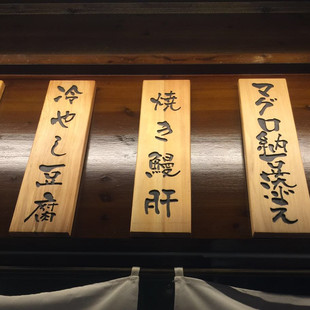 マグロ納豆ぞえ
焼き鰻肝
冷やし豆腐